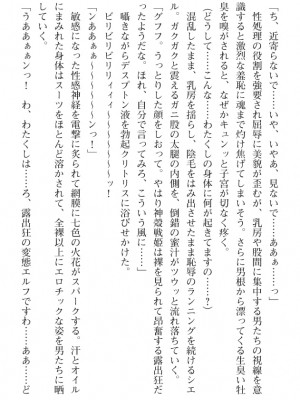 「ち、近寄らないで……いや、いやあ、見ないで……ああぁ……っ」
　性処理の役割を強要され屈辱に美貌が歪むが、乳房や股間に集中する男たちの視線を意
識すると激烈な羞恥に魂まで灼け焦げてしまいそう。さらに男根から漂ってくる生臭い牡
臭を嗅がされると、なぜかキュンッと子宮が切なく疼く。
（どうして……こんな……わたくしの身体に何が起きてますの……？）
　混乱したまま、乳房を揺らし、陰毛をはみ出させたまま恥辱のランニングを続けるシエ
ル。ガクガクと震えるガニ股の太腿の内側を、倒錯の蜜汁がツウッと流れ落ちていく。
「グフフ。うっとりした顔をしおって。やはり神殻戦姫は裸を見られて昂奮する露出狂だ
ったようだな。ほれ、自分で言ってみろ、こういう風に……」
　囁きながらデスプトン液を勃起クリトリスに浴びせかけた。
　ビリビリビリィィィ～～～～ンッ！
「ンああぁぁ～～～～～～～っ！」
　敏感になった性感神経を電撃に炙られて網膜に七色の火花がスパークする。汗とオイル
にまみれた身体はスーツをほとんど溶かされて、全裸以上にエロチックな姿を男たちに晒
していく。
「うああぁぁンっ！　わ、わたくしは……ろ、露出狂の変態エルフですわ……ああ……ど